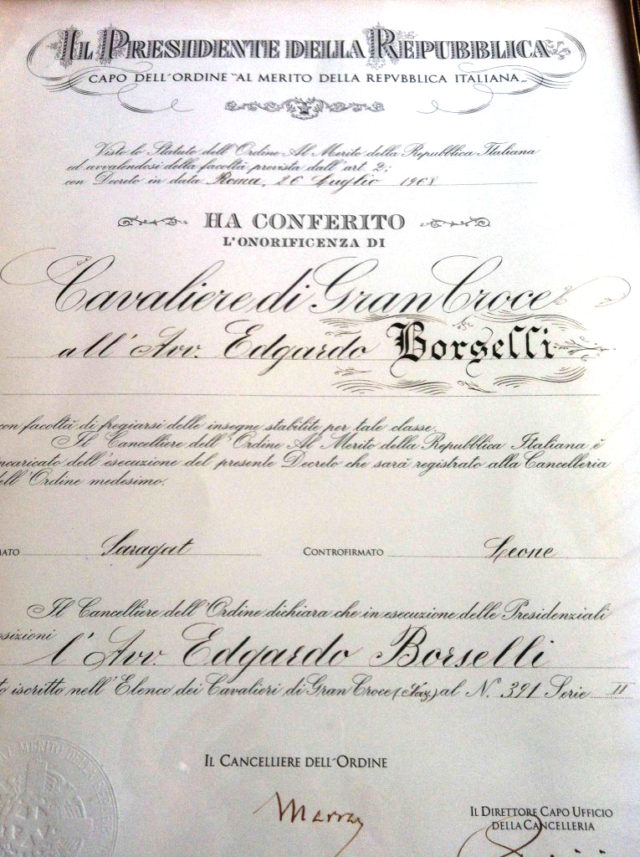 IL PRESIDENTE DELLA REPUBBLICA
CAPO DELL'ORDINE "AL MERITO DELLA REPVBBLICA ITALIANA"
Visto lo Statuto dell'Ordine Al Merito della Repubblica Italiana
ed avvalendosi della facoltà prevista dall'art. 2;
con Decreto in data Roma, 26 Luglio 1968
HA CONFERITO
L'ONORIFICENZA DI
Cavaliere di Gran Croce
all'Avv. Edgardo Borselli
con facoltà di fregiarsi delle insegne stabilite per tale classe.
Il Cancelliere dell'Ordine Al Merito della Repubblica Italiana è
ncaricato dell'esecuzione del presente Decreto che sarà registrato alla Cancelleria
ell'Ordine medesimo.
ATO Saragat CONTROFIRMATO Leone
Il Cancelliere dell'Ordine dichiara che in esecuzione delle Presidenziali
sizioni l'Avv. Edgardo Borselli
to iscritto nell'Elenco dei Cavalieri di Gran Croce al N. 391 Serie II
IL CANCELLIERE DELL'ORDINE
IL DIRETTORE CAPO UFFICIO
DELLA CANCELLERIA